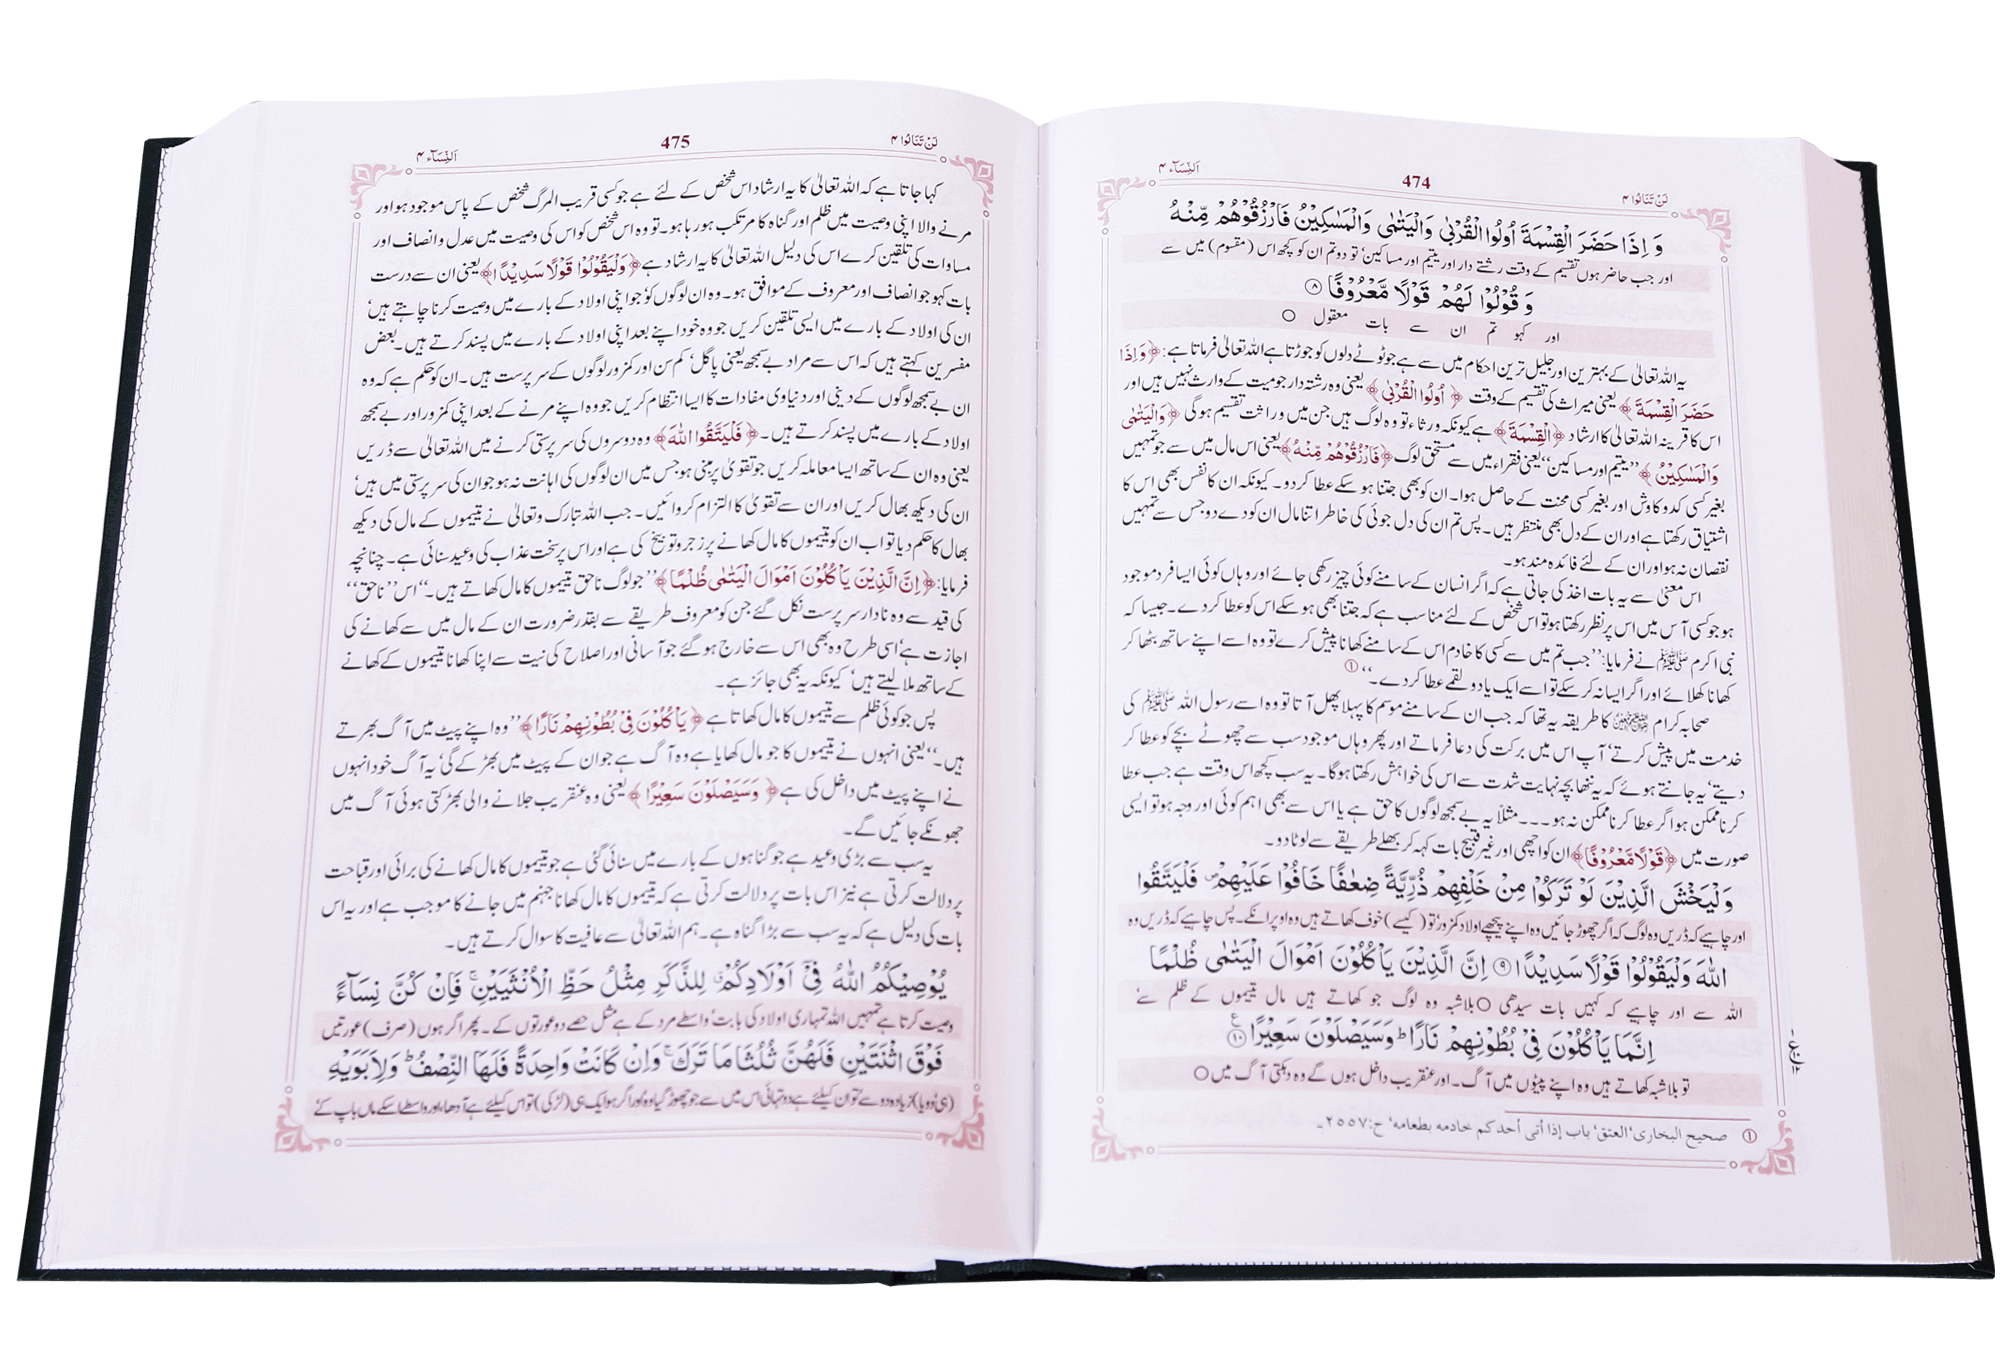 لَنْ تَنَالُوا ۴
474
اَلنِّسَآء ۴
وَ اِذَا حَضَرَ الْقِسْمَةَ اُولُوا الْقُرْبٰى وَالْيَتٰمٰى وَالْمَسٰكِيْنُ فَارْزُقُوْهُمْ مِّنْهُ
اور جب حاضر ہوں تقسیم کے وقت رشتے دار اور یتیم اور مساکین' تو دو تم ان کو کچھ اس (مقسوم) میں سے
وَ قُوْلُوْا لَهُمْ قَوْلًا مَّعْرُوْفًا ۸
اور کہو تم ان سے بات معقول ○
یہ اللہ تعالیٰ کے بہترین اور جلیل ترین احکام میں سے ہے جو ٹوٹے دلوں کو جوڑتا ہے اللہ تعالیٰ فرماتا ہے: ﴿وَاِذَا
حَضَرَ الْقِسْمَةَ﴾ یعنی میراث کی تقسیم کے وقت ﴿اُولُوا الْقُرْبٰى﴾ یعنی وہ رشتہ دار جو میت کے وارث نہیں ہیں اور
اس کا قرینہ اللہ تعالیٰ کا ارشاد ﴿الْقِسْمَةَ﴾ ہے کیونکہ ورثاء تو وہ لوگ ہیں جن میں وراثت تقسیم ہوگی ﴿وَالْيَتٰمٰى
وَالْمَسٰكِيْنُ﴾ ''یتیم اور مساکین'' یعنی فقراء میں سے مستحق لوگ ﴿فَارْزُقُوْهُمْ مِّنْهُ﴾ یعنی اس مال میں سے جو تمہیں
بغیر کسی کدوکاوش اور بغیر کسی محنت کے حاصل ہوا۔ ان کو بھی جتنا ہو سکے عطا کر دو۔ کیونکہ ان کا نفس بھی اس کا
اشتیاق رکھتا ہے اور ان کے دل بھی منتظر ہیں۔ پس تم ان کی دل جوئی کی خاطر اتنا مال ان کو دے دو جس سے تمہیں
نقصان نہ ہو اور ان کے لئے فائدہ مند ہو۔
اس معنی سے یہ بات اخذ کی جاتی ہے کہ اگر انسان کے سامنے کوئی چیز رکھی جائے اور وہاں کوئی ایسا فرد موجود
ہو جو کسی آس میں اس پر نظر رکھتا ہو تو اس شخص کے لئے مناسب ہے کہ جتنا بھی ہو سکے اس کو عطا کر دے۔ جیسا کہ
نبی اکرم ﷺ نے فرمایا: ''جب تم میں سے کسی کا خادم اس کے سامنے کھانا پیش کرے تو وہ اسے اپنے ساتھ بٹھا کر
کھانا کھلائے اور اگر ایسا نہ کر سکے تو اسے ایک یا دو لقمے عطا کر دے۔'' ①
صحابہ کرام کا طریقہ یہ تھا کہ جب ان کے سامنے موسم کا پہلا پھل آتا تو وہ اسے رسول اللہ ﷺ کی
خدمت میں پیش کرتے' آپ اس میں برکت کی دعا فرماتے اور پھر وہاں موجود سب سے چھوٹے بچے کو عطا کر
دیتے' یہ جانتے ہوئے کہ یہ ننھا بچہ نہایت شدت سے اس کی خواہش رکھتا ہوگا۔ یہ سب کچھ اس وقت ہے جب عطا
کرنا ممکن ہو اگر عطا کرنا ممکن نہ ہو۔۔۔ مثلاً یہ بے سمجھ لوگوں کا حق ہے یا اس سے بھی اہم کوئی اور وجہ ہو تو ایسی
صورت میں ﴿قَوْلًا مَّعْرُوْفًا﴾ ان کو اچھی اور غیر قبیح بات کہہ کر بھلے طریقے سے لوٹا دو۔
وَلْيَخْشَ الَّذِيْنَ لَوْ تَرَكُوْا مِنْ خَلْفِهِمْ ذُرِّيَّةً ضِعٰفًا خَافُوْا عَلَيْهِمْ ص فَلْيَتَّقُوا
اور چاہیے کہ ڈریں وہ لوگ کہ اگر چھوڑ جائیں وہ اپنے پیچھے اولاد کمزور' تو (کیسے) خوف کھاتے ہیں وہ اوپر انکے۔ پس چاہیے کہ ڈریں وہ
اللّٰهَ وَلْيَقُوْلُوْا قَوْلًا سَدِيْدًا ۹ اِنَّ الَّذِيْنَ يَاْكُلُوْنَ اَمْوَالَ الْيَتٰمٰى ظُلْمًا
اللہ سے اور چاہیے کہ کہیں بات سیدھی ○ بلاشبہ وہ لوگ جو کھاتے ہیں مال یتیموں کے ظلم سے'
اِنَّمَا يَاْكُلُوْنَ فِيْ بُطُوْنِهِمْ نَارًا ط وَسَيَصْلَوْنَ سَعِيْرًا ۱۰
تو بلاشبہ کھاتے ہیں وہ اپنے پیٹوں میں آگ۔ اور عنقریب داخل ہوں گے وہ دہکتی آگ میں ○
① صحيح البخاری' العتق' باب إذا أتى أحدكم خادمه بطعامه' ح:۲۵۵۷۔
لَنْ تَنَالُوا ۴
475
اَلنِّسَآء ۴
کہا جاتا ہے کہ اللہ تعالیٰ کا یہ ارشاد اس شخص کے لئے ہے جو کسی قریب المرگ شخص کے پاس موجود ہو اور
مرنے والا اپنی وصیت میں ظلم اور گناہ کا مرتکب ہو رہا ہو۔ تو وہ اس شخص کو اس کی وصیت میں عدل و انصاف اور
مساوات کی تلقین کرے اس کی دلیل اللہ تعالیٰ کا یہ ارشاد ہے ﴿وَلْيَقُوْلُوْا قَوْلًا سَدِيْدًا﴾ یعنی ان سے درست
بات کہو جو انصاف اور معروف کے موافق ہو۔ وہ ان لوگوں کو' جو اپنی اولاد کے بارے میں وصیت کرنا چاہتے ہیں'
ان کی اولاد کے بارے میں ایسی تلقین کریں جو وہ خود اپنے بعد اپنی اولاد کے بارے میں پسند کرتے ہیں۔ بعض
مفسرین کہتے ہیں کہ اس سے مراد بے سمجھ یعنی پاگل' کم سن اور کمزور لوگوں کے سرپرست ہیں۔ ان کو حکم ہے کہ وہ
ان بے سمجھ لوگوں کے دینی اور دنیاوی مفادات کا ایسا انتظام کریں جو وہ اپنے مرنے کے بعد اپنی کمزور اور بے سمجھ
اولاد کے بارے میں پسند کرتے ہیں۔ ﴿فَلْيَتَّقُوا اللّٰهَ﴾ وہ دوسروں کی سرپرستی کرنے میں اللہ تعالیٰ سے ڈریں
یعنی وہ ان کے ساتھ ایسا معاملہ کریں جو تقویٰ پر مبنی ہو جس میں ان لوگوں کی اہانت نہ ہو جو ان کی سرپرستی میں ہیں'
ان کی دیکھ بھال کریں اور ان سے تقویٰ کا التزام کروائیں۔ جب اللہ تبارک وتعالیٰ نے یتیموں کے مال کی دیکھ
بھال کا حکم دیا تو اب ان کو یتیموں کا مال کھانے پر زجر و توبیخ کی ہے اور اس پر سخت عذاب کی وعید سنائی ہے۔ چنانچہ
فرمایا: ﴿اِنَّ الَّذِيْنَ يَاْكُلُوْنَ اَمْوَالَ الْيَتٰمٰى ظُلْمًا﴾ ''جو لوگ ناحق یتیموں کا مال کھاتے ہیں۔'' اس ''ناحق''
کی قید سے وہ نادار سرپرست نکل گئے جن کو معروف طریقے سے بقدر ضرورت ان کے مال میں سے کھانے کی
اجازت ہے' اسی طرح وہ بھی اس سے خارج ہو گئے جو آسانی اور اصلاح کی نیت سے اپنا کھانا یتیموں کے کھانے
کے ساتھ ملا لیتے ہیں' کیونکہ یہ بھی جائز ہے۔
پس جو کوئی ظلم سے یتیموں کا مال کھاتا ہے ﴿يَاْكُلُوْنَ فِيْ بُطُوْنِهِمْ نَارًا﴾ ''وہ اپنے پیٹ میں آگ بھرتے
ہیں۔'' یعنی انہوں نے یتیموں کا جو مال کھایا ہے وہ آگ ہے جو ان کے پیٹ میں بھڑکے گی' یہ آگ خود انہوں
نے اپنے پیٹ میں داخل کی ہے ﴿وَسَيَصْلَوْنَ سَعِيْرًا﴾ یعنی وہ عنقریب جلانے والی بھڑکتی ہوئی آگ میں
جھونکے جائیں گے۔
یہ سب سے بڑی وعید ہے جو گناہوں کے بارے میں سنائی گئی ہے جو یتیموں کا مال کھانے کی برائی اور قباحت
پر دلالت کرتی ہے نیز اس بات پر دلالت کرتی ہے کہ یتیموں کا مال کھانا جہنم میں جانے کا موجب ہے اور یہ اس
بات کی دلیل ہے کہ یہ سب سے بڑا گناہ ہے۔ ہم اللہ تعالیٰ سے عافیت کا سوال کرتے ہیں۔
يُوْصِيْكُمُ اللّٰهُ فِيْٓ اَوْلَادِكُمْ لِلذَّكَرِ مِثْلُ حَظِّ الْاُنْثَيَيْنِ ج فَاِنْ كُنَّ نِسَآءً
وصیت کرتا ہے تمہیں اللہ تمہاری اولاد کی بابت' واسطے مرد کے ہے مثل حصے دو عورتوں کے۔ پھر اگر ہوں (صرف) عورتیں
فَوْقَ اثْنَتَيْنِ فَلَهُنَّ ثُلُثَا مَا تَرَكَ ج وَاِنْ كَانَتْ وَاحِدَةً فَلَهَا النِّصْفُ ط وَلِاَبَوَيْهِ
(ہی دو یا) زیادہ دو سے' تو ان کیلئے ہے دو تہائی اس میں سے جو چھوڑ گیا وہ اور اگر ہو ایک ہی (لڑکی) تو اس کیلئے ہے آدھا، اور واسطے اسکے ماں باپ کے'